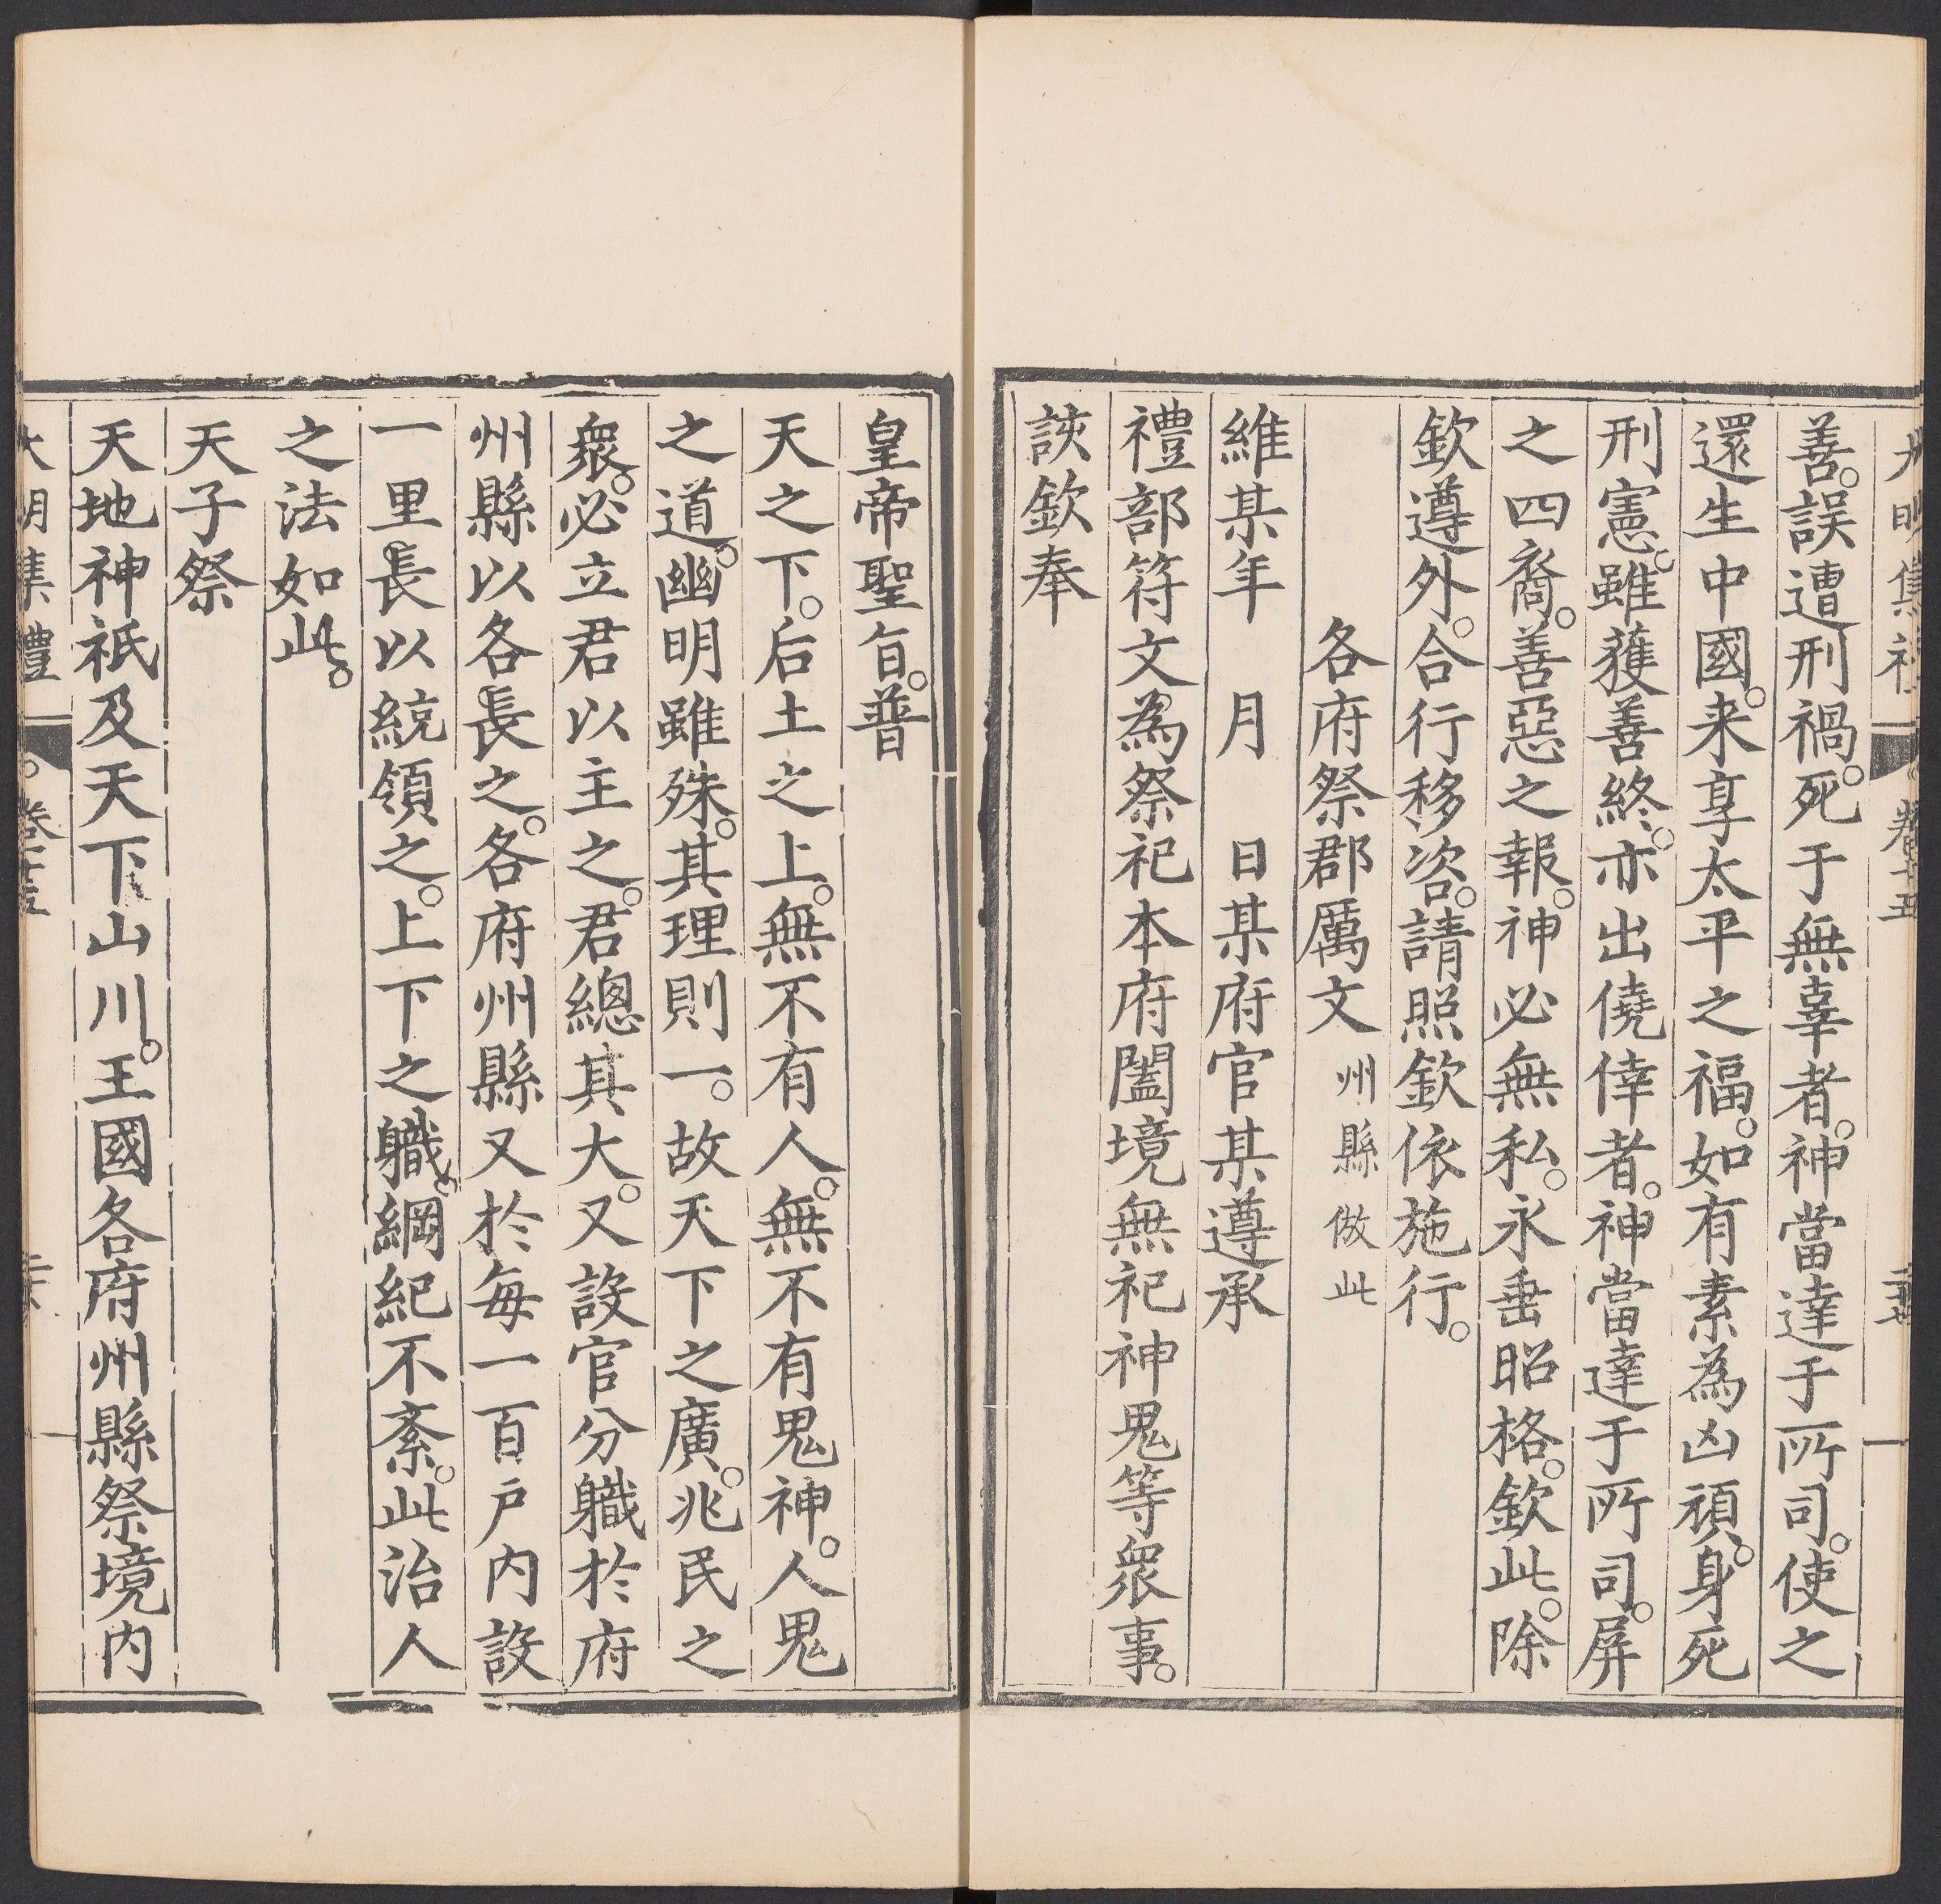 大明集禮 卷十五
善。誤遭刑禍。死于無辜者。神當達于所司。使之
還生中國。来享太平之福。如有素為凶頑。身死
刑憲。雖獲善終。亦出僥倖者。神當達于所司。屏
之四裔。善惡之報。神必無私。永垂昭格。欽此。除
欽遵外。合行移咨。請照欽依施行。
各府祭郡厲文 州縣倣此
維某年 月 日某府官某遵承
禮部符文為祭祀本府闔境無祀神鬼等衆事。
該欽奉
皇帝聖旨。普
天之下。后土之上。無不有人。無不有鬼神。人鬼
之道。幽明雖殊。其理則一。故天下之廣。兆民之
衆。必立君以主之。君總其大。又設官分職於府
州縣以各長之。各府州縣又於每一百戸内設
一里長以統領之。上下之職。綱紀不紊。此治人
之法如此。
天子祭
天地神祇及天下山川。王國各府州縣祭境内
大明集禮 卷十五